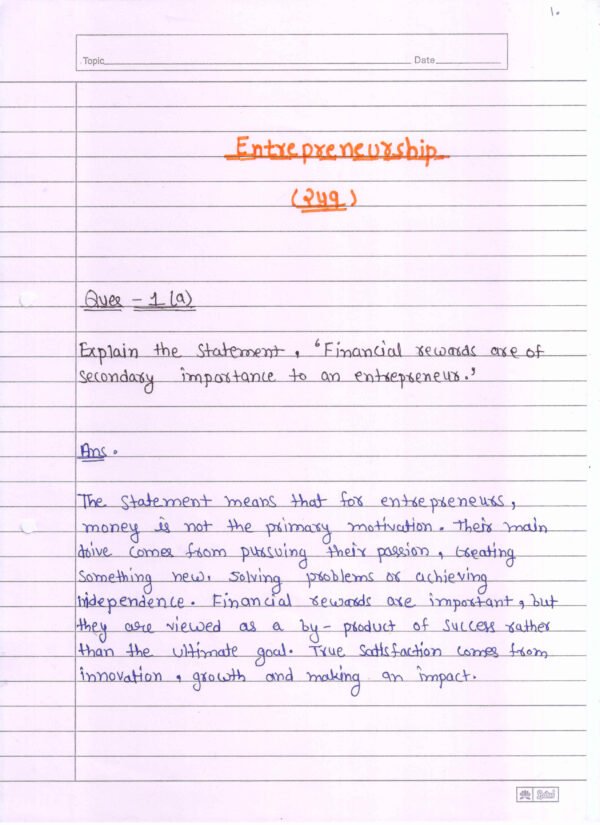 1.
Topic Date
Entrepreneurship
(२५९)
Ques - 1 (a)
Explain the Statement, 'Financial rewards are of
secondary importance to an entrepreneur.'
Ans.
The Statement means that for entrepreneurs,
money is not the primary motivation. Their main
drive comes from pursuing their passion, creating
Something new, solving problems or achieving
independence. Financial rewards are important, but
they are viewed as a by-product of success rather
than the ultimate goal. True satisfaction comes from
innovation, growth and making an impact.